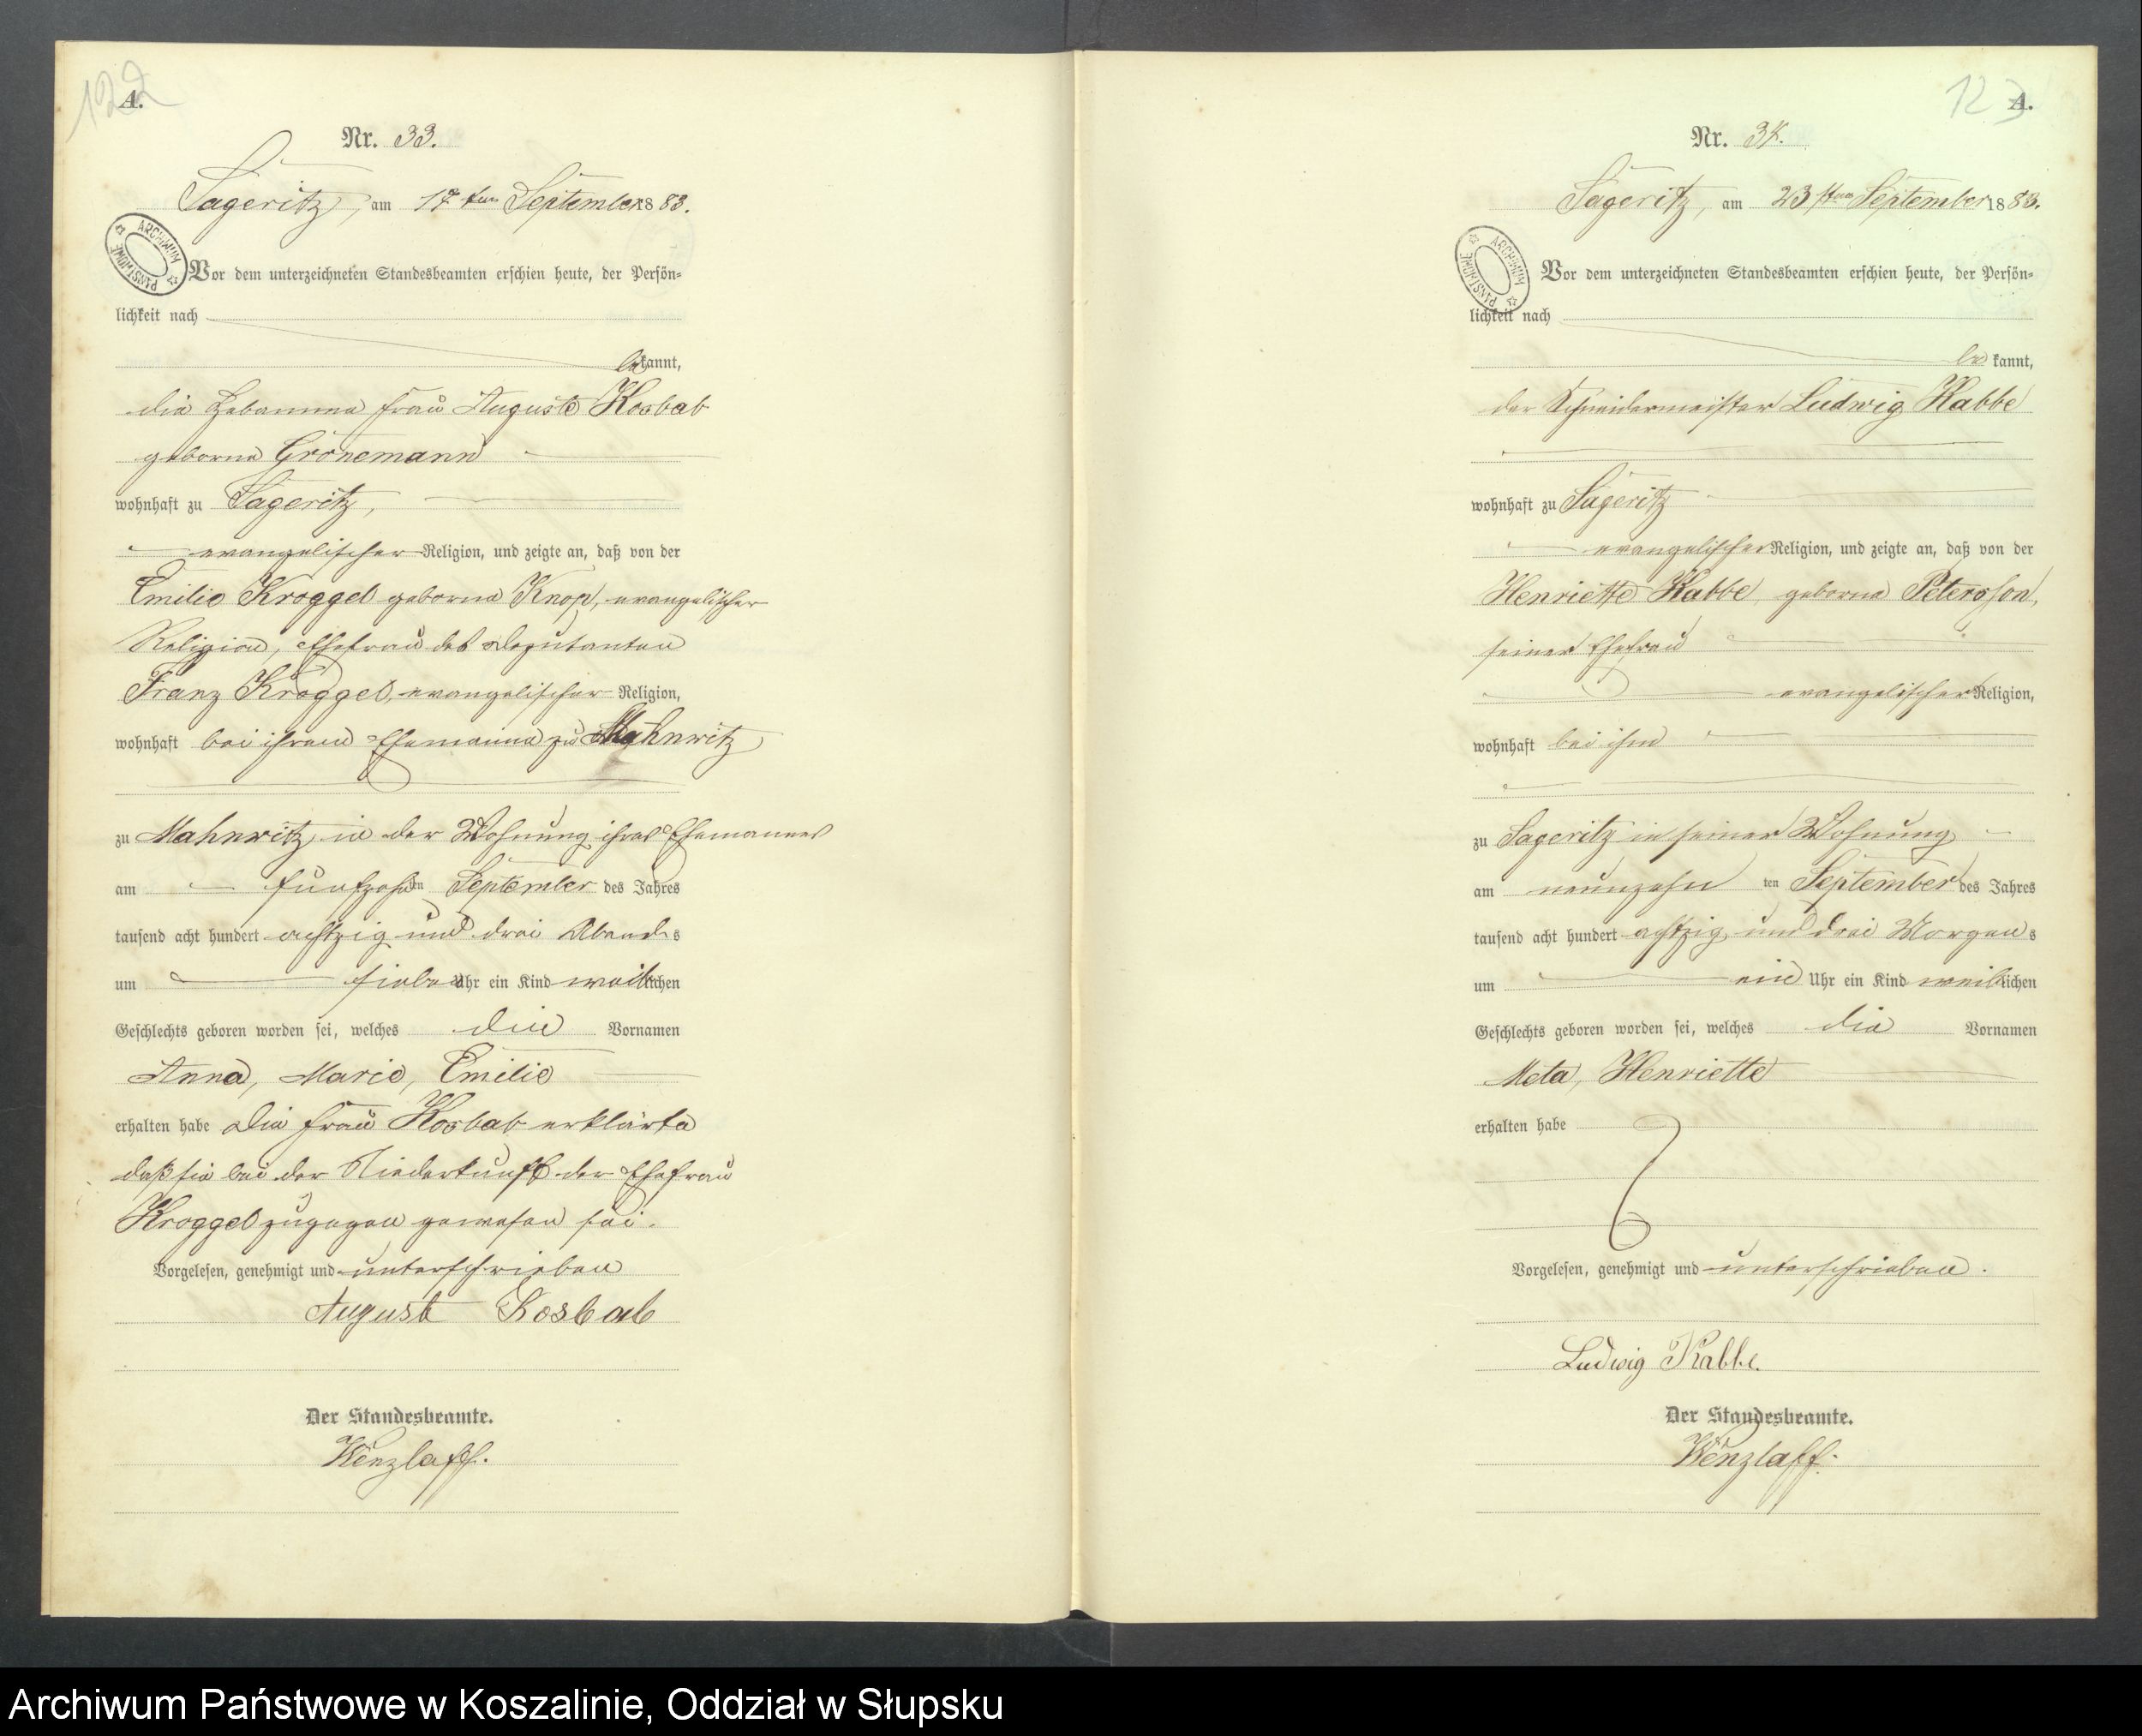 122
A.
Nr. 33.
Sageritz, am 17ten September 1883.
ARCHIWUM PAŃSTWOWE
Vor dem unterzeichneten Standesbeamten erschien heute, der Persön-
lichkeit nach
bekannt,
die Hebamme Frau Auguste Kosbab
geborne Grönemann
wohnhaft zu Sageritz,
evangelischer Religion, und zeigte an, daß von der
Emilie Kroggel geborne Knop, evangelischer
Religion, Ehefrau des Deputanten
Franz Kroggel, evangelischer Religion,
wohnhaft bei ihrem Ehemanne zu Mahnwitz
zu Mahnwitz in der Wohnung ihres Ehemannes
am fünfzehnten September des Jahres
tausend acht hundert achtzig und drei Abends
um sieben Uhr ein Kind weiblichen
Geschlechts geboren worden sei, welches die Vornamen
Anna, Marie, Emilie
erhalten habe Die Frau Kosbab erklärte
daß sie bei der Niederkunft der Ehefrau
Kroggel zugegen gewesen sei.
Vorgelesen, genehmigt und unterschrieben
August Kosbab
Der Standesbeamte.
Wenzlaff.
123
A.
Nr. 34.
Sageritz, am 23sten September 1883.
ARCHIWUM PAŃSTWOWE
Vor dem unterzeichneten Standesbeamten erschien heute, der Persön-
lichkeit nach
bekannt,
der Schneidermeister Ludwig Rabbe
wohnhaft zu Sageritz
evangelischer Religion, und zeigte an, daß von der
Henriette Rabbe, geborne Petersson,
seiner Ehefrau
evangelischer Religion,
wohnhaft bei ihm
zu Sageritz in seiner Wohnung
am neunzehn ten September des Jahres
tausend acht hundert achtzig und drei Morgens
um ein Uhr ein Kind weiblichen
Geschlechts geboren worden sei, welches die Vornamen
Meta, Henriette
erhalten habe
Vorgelesen, genehmigt und unterschrieben.
Ludwig Rabbe.
Der Standesbeamte.
Wenzlaff.
Archiwum Państwowe w Koszalinie, Oddział w Słupsku